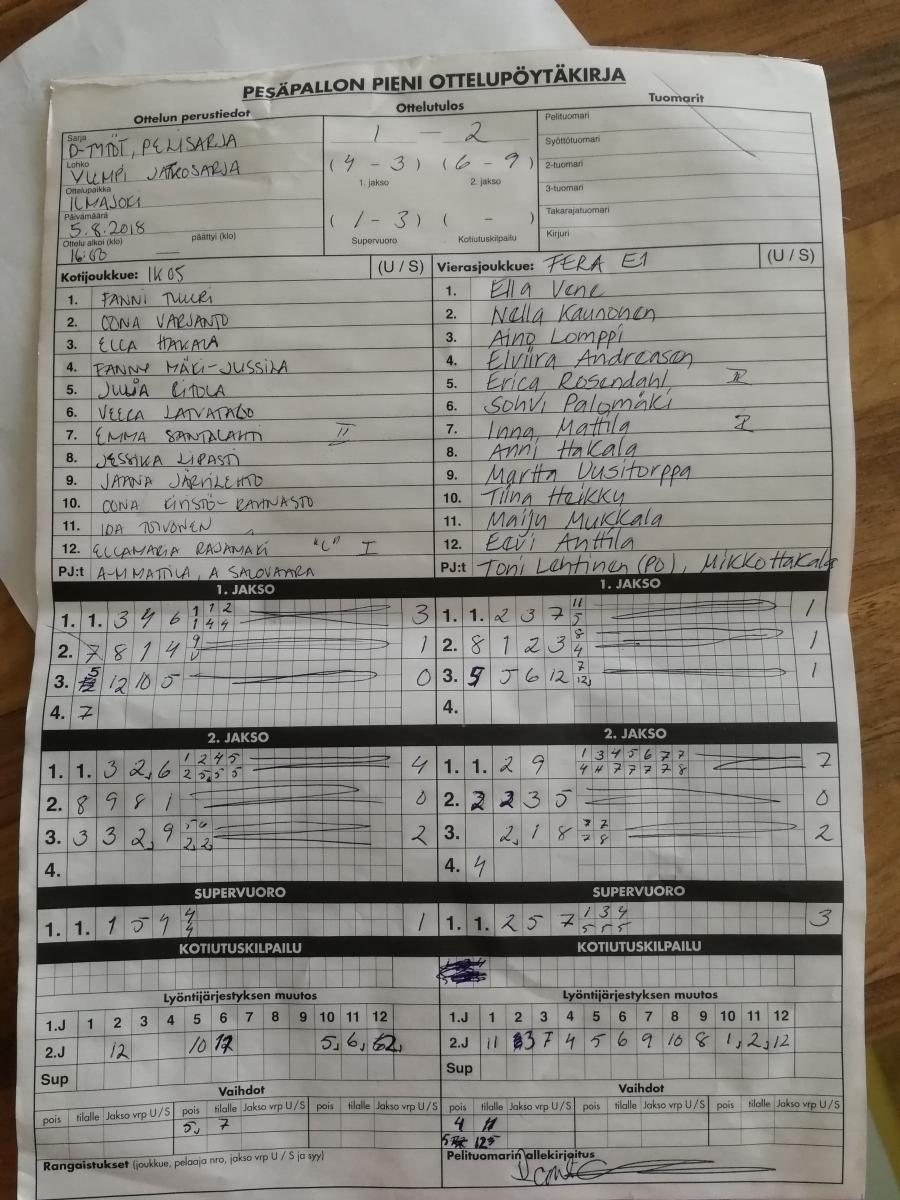 PESÄPALLON PIENI OTTELUPÖYTÄKIRJA
Ottelun perustiedot Ottelutulos Tuomarit
Sarja
D-TYTÖT, PELISARJA
Lohko
VUMPI JATKOSARJA
Ottelupaikka
ILMAJOKI
Päivämäärä
5.8.2018
Ottelu alkoi (klo) päättyi (klo)
16:00 —
1 - 2
(4 - 3) (6 - 9)
1. jakso 2. jakso
(1 - 3) ( - )
Supervuoro Kotiutuskilpailu
Pelituomari
Syöttötuomari
2-tuomari
3-tuomari
Takarajatuomari
Kirjuri
Kotijoukkue: IK 05 (U / S)
1. FANNI TUURI
2. OONA VARJANTO
3. ELLA HAKALA
4. FANNY MÄKI-JUSSILA
5. JULIA RITOLA
6. VEERA LATVATALO
7. EMMA SANTALAHTI II
8. JESSIKA LIPASTI
9. JAANA JÄRVILEHTO
10. OONA
11. IDA TOIVONEN
12. ELLAMARIA RAJAMÄKI "L" I
PJ:t A-M MATTILA, A SALOVAARA
Vierasjoukkue: FERA E1 (U / S)
1. Ella Vene
2. Nella Kaunonen
3. Aino Lomppi
4. Elviira Andreasen
5. Erica Rosendahl II
6. Sohvi Palomäki
7. Inna Mattila I
8. Anni Hakala
9. Martta Uusitorppa
10. Tiina Heikku
11. Maiju Mukkala
12. Eevi Anttila
PJ:t Toni Lehtinen (PO), Mikko Hakala
1. JAKSO
1. 1. 3 4 6 1 1 2 3
1 4 4
2. 7 8 1 4 9 1
3. 12 10 5 0
4. 7
1. JAKSO
1. 1. 2 3 7 11 1
5
2. 8 1 2 3 8 1
4
3. 5 6 12 7 1
12
4.
2. JAKSO
1. 1. 3 2, 6 1 2 4 5 4
2 5 5 5
2. 8 9 8 1 0
3. 3 3 2, 9 5 6 2
2, 2,
4.
2. JAKSO
1. 1. 2 9 1 3 4 5 6 7 7 7
4 4 7 7 7 7 8
2. 2 2 3 5 0
3. 2, 1 8 7 7 2
7 8
4. 4
SUPERVUORO
1. 1. 1 5 9 4 1
4
SUPERVUORO
1. 1. 2 5 7 1 3 4 3
5 5 5
KOTIUTUSKILPAILU
KOTIUTUSKILPAILU
Lyöntijärjestyksen muutos
1.J 1 2 3 4 5 6 7 8 9 10 11 12
2.J 12 10 5, 6,
Sup
Lyöntijärjestyksen muutos
1.J 1 2 3 4 5 6 7 8 9 10 11 12
2.J 11 3 7 4 5 6 9 10 8 1, 2, 12
Sup
Vaihdot
pois tilalle Jakso vrp U / S pois tilalle Jakso vrp U / S pois tilalle Jakso vrp U / S
5, 7
Vaihdot
pois tilalle Jakso vrp U / S pois tilalle Jakso vrp U / S pois tilalle Jakso vrp U / S
4 11
Rangaistukset (joukkue, pelaaja nro, jakso vrp U / S ja syy)
Pelituomarin allekirjoitus